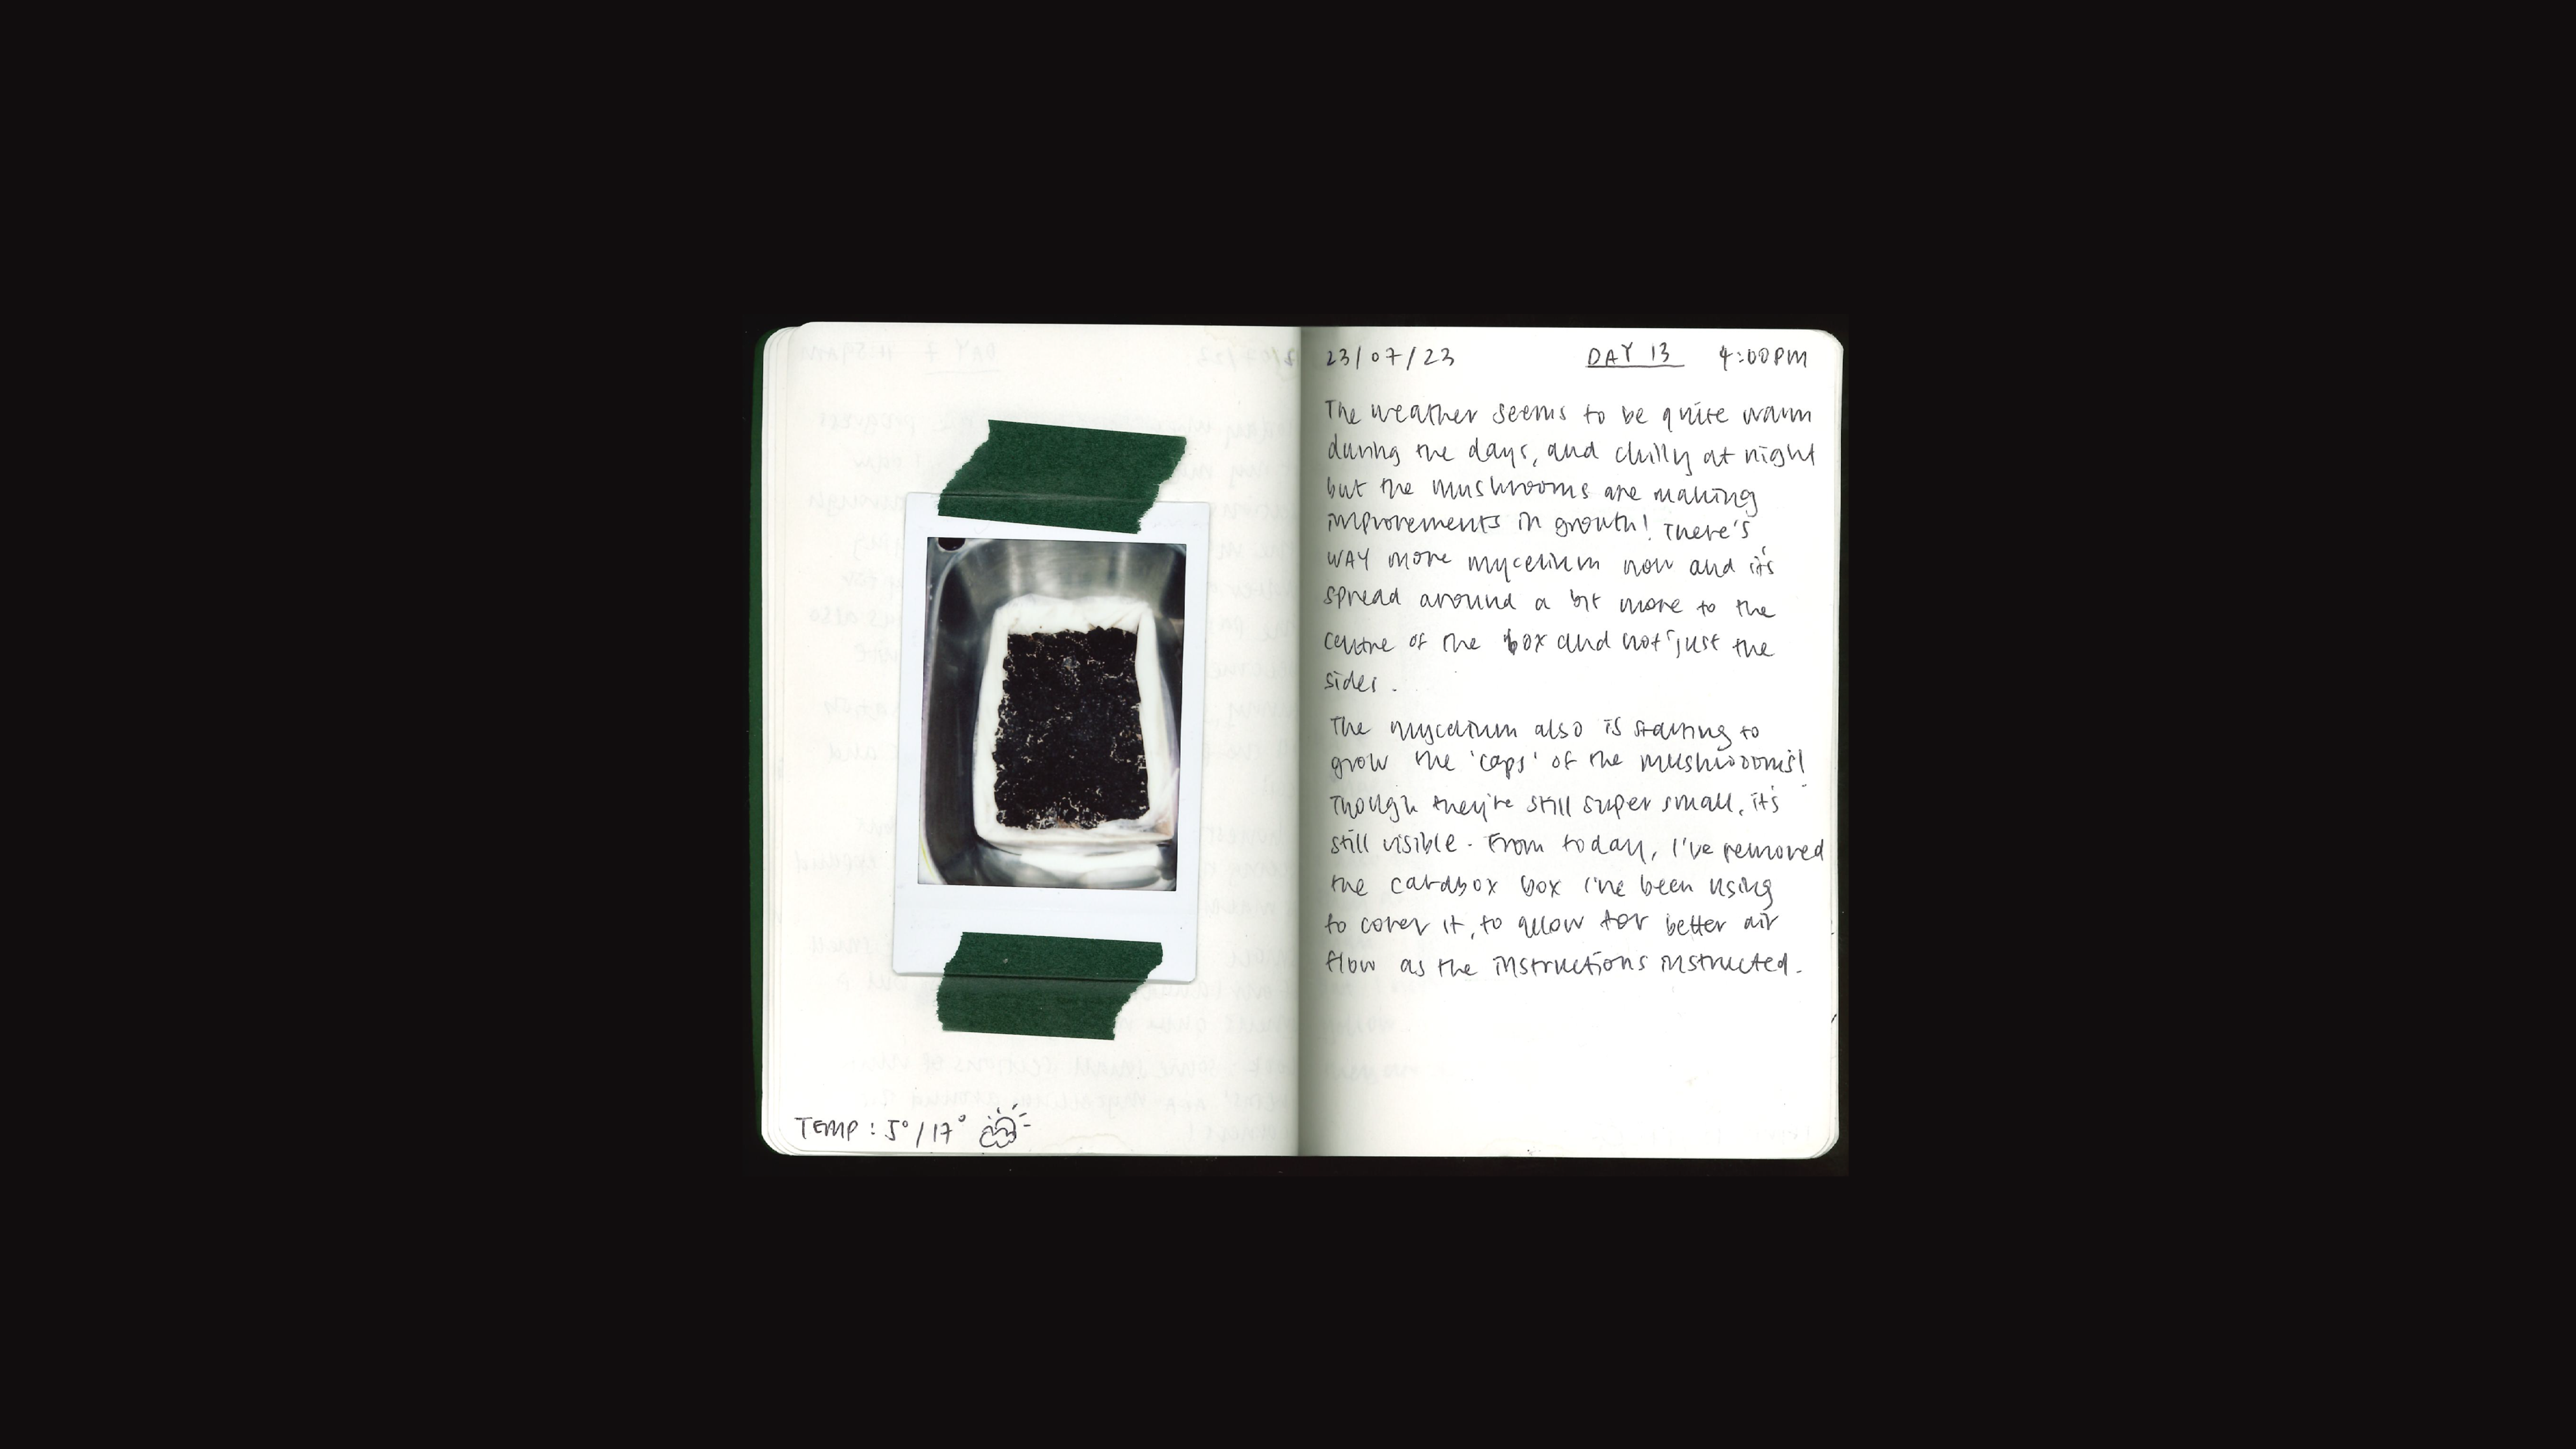 TEMP : 5°/17°
23/07/23 DAY 13 4:00PM
The weather seems to be quite warm
during the days, and chilly at night
but the mushrooms are making
improvements in growth! There's
WAY more mycelium now and it's
spread around a bit more to the
centre of the box and not just the
sides.
The mycelium also is starting to
grow the 'caps' of the mushrooms!
Though they're still super small, it's
still visible. From today, I've removed
the cardbox box I've been using
to cover it, to allow for better air
flow as the instructions instructed.